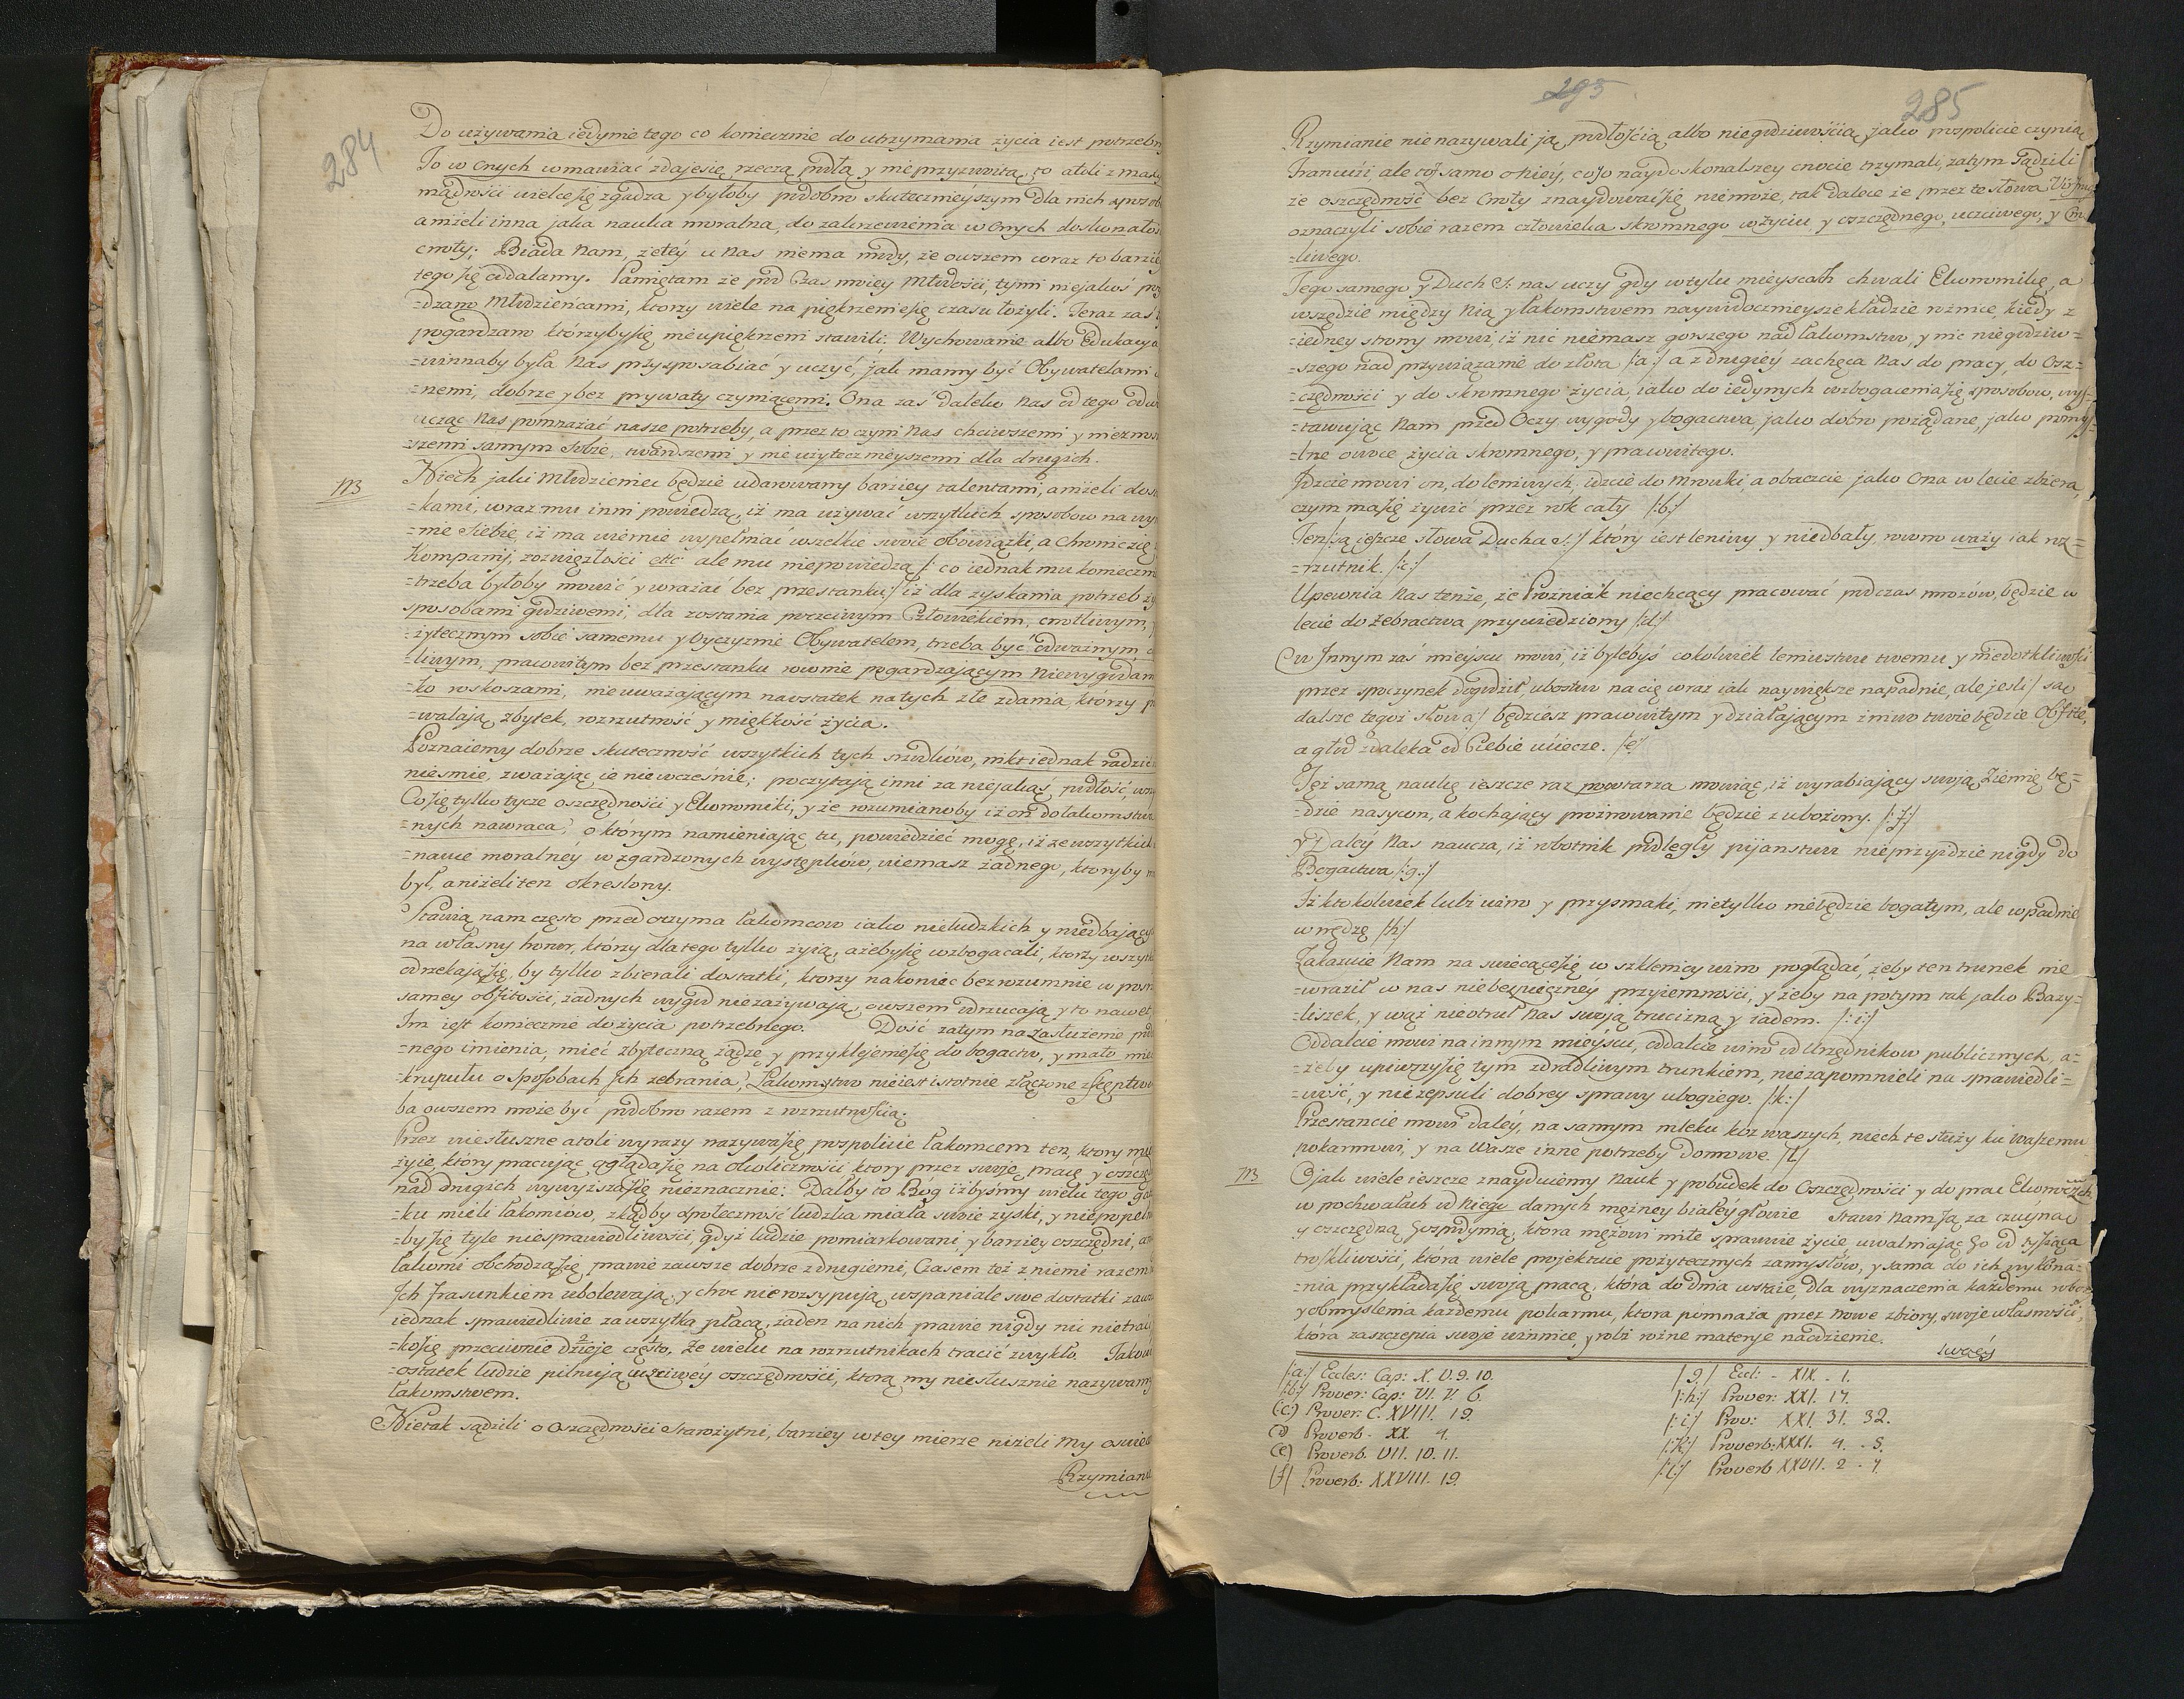 284
Do używania iedynie tego co koniecznie do utrzymania życia iest potrzebn
To w Cnych wmawiać zdaiesię rzeczą podłą y nieprzyzwoitą, to atoli z
mądrości wielce się zgadza y byłoby podobno skutecznieyszym dla nich
aniżeli inna jaka nauka moralna, do zakrzewienia w Cnych doskonałoś
cnoty; Biada Nam, że tey u Nas niema mody, że owszem coraz to barzie
tego się oddalamy. Pamiętam że pod Czas moiey Młodości, tymi niejakoś
=dzano Młodzieńcami, ktorzy wiele na pięknienie się czasu łożyli. Teraz zaś
pogardzano którzyby się nieupięknieni stawili. Wychowanie albo Edukacya
=winnaby była Nas przysposabiać y uczyć, jak mamy być Obywatelami
=nemi, dobrze y bez prywaty czyniącemi. Ona zaś daleko Nas od tego
ucząc Nas pomnażać nasze potrzeby, a przez to czyni Nas chciwszemi y
=szemi samym sobie, twardszemi y nieużytecznieyszemi dla drugich.
NB
Niech jaki Młodzieniec będzie udarowany barziey talentami, aniżeli
=kami, wraz mu inni powiedzą, iż ma używać wszytkich sposobow na
=nie Siebie, iż ma wiernie wypełniać wszelkie swoie obowiązki, a chronić się
Kompanij, rozwięzłości etc: ale mu niepowiedzą /: co iednak mu konieczn
=trzeba byłoby mowić y wrażać bez przestanku:/ iż dla zyskania potrzeb
sposobami godziwemi, dla zostania poczciwym Człowiekiem, cnotliwym,
=żytecznym sobie samemu y Oyczyznie Obywatelem, trzeba być odważnym,
=liwym, pracowitym bez przestanku rownie pogardzaiącym Niewygodam
=ko roskoszami, nieuważaiącym naostatek na tych złe zdania, ktorzy
=walaią zbytek, rozrzutność y miękkość życia.
Poznaiemy dobrze skuteczność wszytkich tych srzodkow, nikt iednak radzić
niesmie, zważaiąc ie niewcześnie; poczytaią inni za niejakąś podłość,
Co się tylko tycze oszczędności y Ekonomiki, y że rozumianoby iż on do łakomstwa
=nych nawraca; o którym namieniaiąc tu, powiedzieć mogę, iż ze wszytkich
=nauce moralney wzgardzonych występkow, niemasz żadnego, ktoryby
był, aniżeli ten okreslony.
Stawią nam często przed oczyma łakomcow iako nieludzkich y niedbaiący
na własny honor, którzy dla tego tylko żyią, ażeby się wzbogacali, ktorzy
odrzekaią się, by tylko zbierali dostatki, ktorzy nakoniec bez rozumnie w
samey obfitości, żadnych wygod niezażywaią, owszem odrzucaią y to nawet
Im iest koniecznie do życia potrzebnego. Dość zatym na zasłużenie
=nego imienia, mieć zbyteczną żądzę y przyklejenie się do bogactw, y mało
=krupułu o sposobach Ich zebrania; Łakomstwo nieiest istotnie złączone z
ba owszem może być podobno razem z rozrzutnością.
Przez niesłuszne atoli wyrazy nazywa się pospolicie łakomcem ten, ktory
żyie, który pracuiąc ogląda się na okoliczności ktory przez swoię pracę y
nad drugich wywyższa się nieznacznie: Dałby to Bóg iżbyśmy wielu tego
=ku mieli łakomcow, zkądby społeczność ludzka miała swoie zyski, y
=by się tyle niesprawiedliwości, gdyż ludzie pomiarkowani y barziey oszczędni,
łakomi obchodzą się prawie zawsze dobrze z drugiemi, Czasem też z niemi razem
Ich frasunkiem ubolewaią, y choć nierozsypuią wspaniale swe dostatki
iednak sprawiedliwie za wszytko płacą, żaden na nich prawie nigdy nic nietraci
=ko się przeciwnie dzieje często, że wielu na rozrzutnikach tracić zwykło.
=ostatek ludzie pilnuią uczciwéy oszczędności, ktorą my niesłusznie nazywamy
łakomstwem.
Nietak sądzili o Oszczędności Starożytni, barziey w tey mierze niżeli My
Rzymianie
295
285
Rzymianie nie nazywali ją podłością albo niegodziwością, jako pospolicie czynią
Francuzi, ale toż samo o Niéy, co o naydoskonalszey cnocie trzymali, zatym sądzili
że oszczędność bez Cnoty znaydować się niemoże, tak dalece że przez te słowa
oznaczyli sobie razem człowieka skromnego w życiu, y oszczędnego, uczciwego, y
=liwego.
Tego samego y Duch S: nas uczy gdy w tylu mieyscach chwali Ekonomikę, a
wszędzie między Nią y łakomstwem naywidocznieysze kładzie rożnice, kiedy z
=iedney strony mowi, iż nic niemasz gorszego nad łakomstwo, y nic niegodziw=
=szego nad przywiązanie do złota /:a:/ a z drugiéy zachęca Nas do pracy, do Osz=
=czędności y do skromnego życia, iako do iedynych wzbogacenia się sposobow, wys=
=tawuiąc Nam przed Oczy wygody y bogactwa, jako dobro pożądane, jako pomyś=
=lne owoce życia skromnego, y pracowitego.
Idzcie mowi on, do leniwych, idzcie do Mrowki, a obaczcie jako Ona w lecie zbiera,
czym ma się żywić przez rok cały /:b:/
Ten /są ieszcze słowa Ducha S:/ który iest leniwy y niedbały, rowno waży iak roz=
=rzutnik. /:c:/
Upewnia Nas tenże, że Prożniak niechcący pracować podczas mrozów, będzie w
lecie do żebractwa przywiedziony /:d:/
w Innym zaś mieyscu mowi, iż byłebyś cokolwiek lenistwu twemu y niedotkliwości
przez spoczynek dogodził, ubostwo na cię wraz iak naywiększe napadnie, ale jesli / są
dalsze tegoż słowa / będziesz pracowitym y działaiącym żniwo twoie będzie Obfite,
a głod zdaleka od Ciebie uciecze. /e/
Też samą naukę ieszcze raz powtarza mowiąc, iż wyrabiaiący swoią Ziemię bę=
=dzie nasycon, a kochaiący prożnowanie będzie zubożony. /:f:/
y daléy Nas naucza, iż robotnik podległy pijanstwu nieprzyidzie nigdy do
Bogactwa /:g:/
Iż ktokolwiek lubi wino y przysmaki, nietylko niebędzie bogatym, ale wpadnie
w nędzę /:h:/
Zakazuie Nam na swiecące się w szklenicy wino poglądać, żeby ten trunek nie
=wraził w nas niebezpieczney przyiemności, y żeby na potym tak jako Bazy=
=liszek, y wąż nieotruł Nas swoią trucizną y iadem. /:i:/
Oddalcie mowi na innym mieyscu, oddalcie wino od Urzędnikow publicznych, a=
=żeby upiwszy się tym zdradliwym trunkiem, niezapomnieli na sprawiedli=
=wość, y niezepsuli dobrey sprawy ubogiego. /:k:/
Przestancie mowi daléy, na samym mleku koz waszych, niech te służy ku waszemu
pokarmowi, y na Wasze inne potrzeby domowe. /:l:/
NB
O jak wiele ieszcze znayduiemy Nauk y pobudek do Oszczędności y do prac
w pochwałach od Niego danych mężney białéy głowie Stawi Nam Ją za czuyną
y oszczędną Gospodynią, ktora mężowi miłe sprawuie życie uwalniaiąc Go od tysiąca
troskliwości, która wiele projektuie pożytecznych zamysłów, y sama do ich wykona=
=nia przykłada się swoią pracą, która do dnia wstaie, dla wyznaczenia każdemu
y obmyslenia każdemu pokarmu, ktora pomnaża przez Nowe zbiory, swoje własności,
która zaszczepia swoje winnice, y robi rożne materye na odzienie.
/:a:/ Eccles: Cap: X. V. 9. 10.
/:b:/ Prover: Cap: VI. V. 6.
(:c:) Prover: C. XVIII. 19.
(d) Proverb - XX. 4.
(e) Proverb. VII. 10. 11.
(f) Proverb: XXVIII. 19.
/g/ Eccl: - XIX. - 1.
/:h:/ Prover: XXI. 17.
/:i:/ Prov: XXI. 31. 32.
/:K:/ Proverb: XXXI. 4. - 5.
/:l:/ Proverb XXVII. 2 - 7.